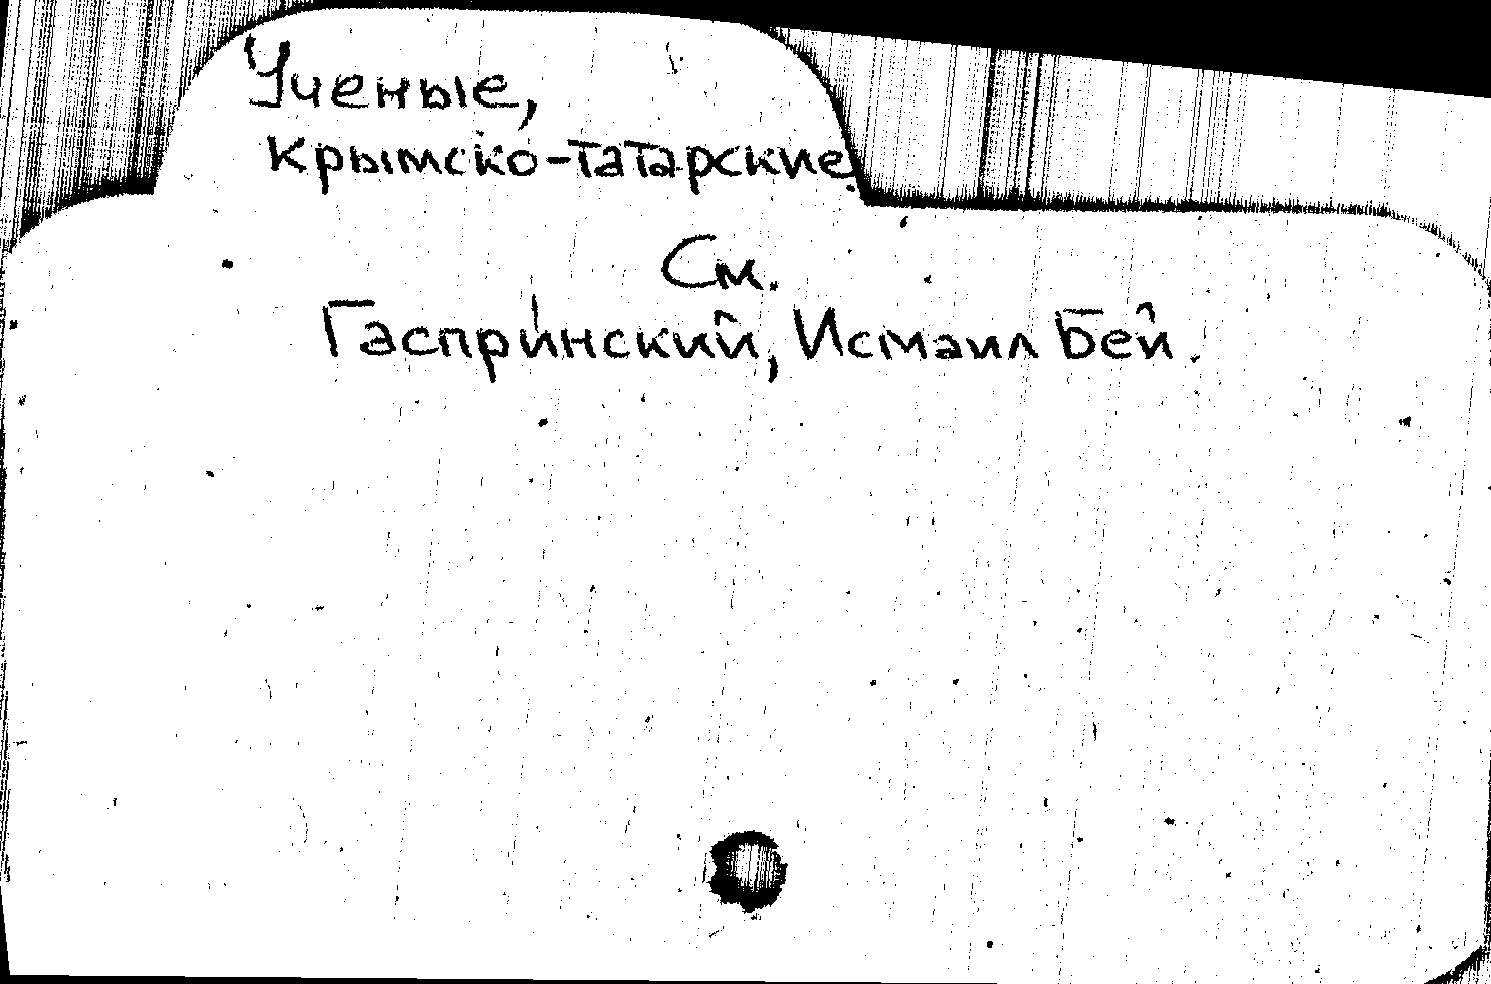 Ученые,
крымско-татарские.
См.
Гаспринский, Исмаил Бей.